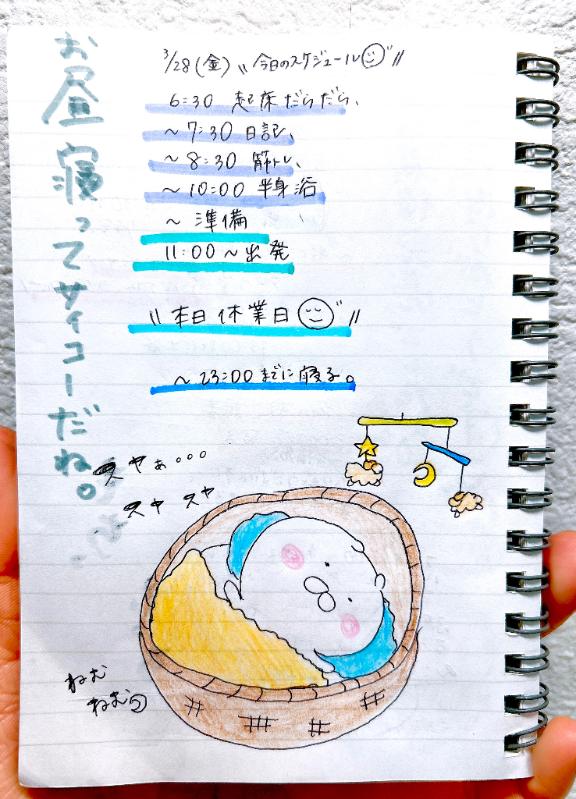 3/28(金) \\ 今日のスケジュール //
6:30 起床だらだら、
~7:30 日記、
~8:30 筋トレ、
~10:00 半身浴
~ 準備
11:00~出発
\\ 本日休業日 //
~23:00までに寝る。
お昼寝ってサイコーだね。
スヤぁ・・・
スヤ スヤ
ねむ
ねむ